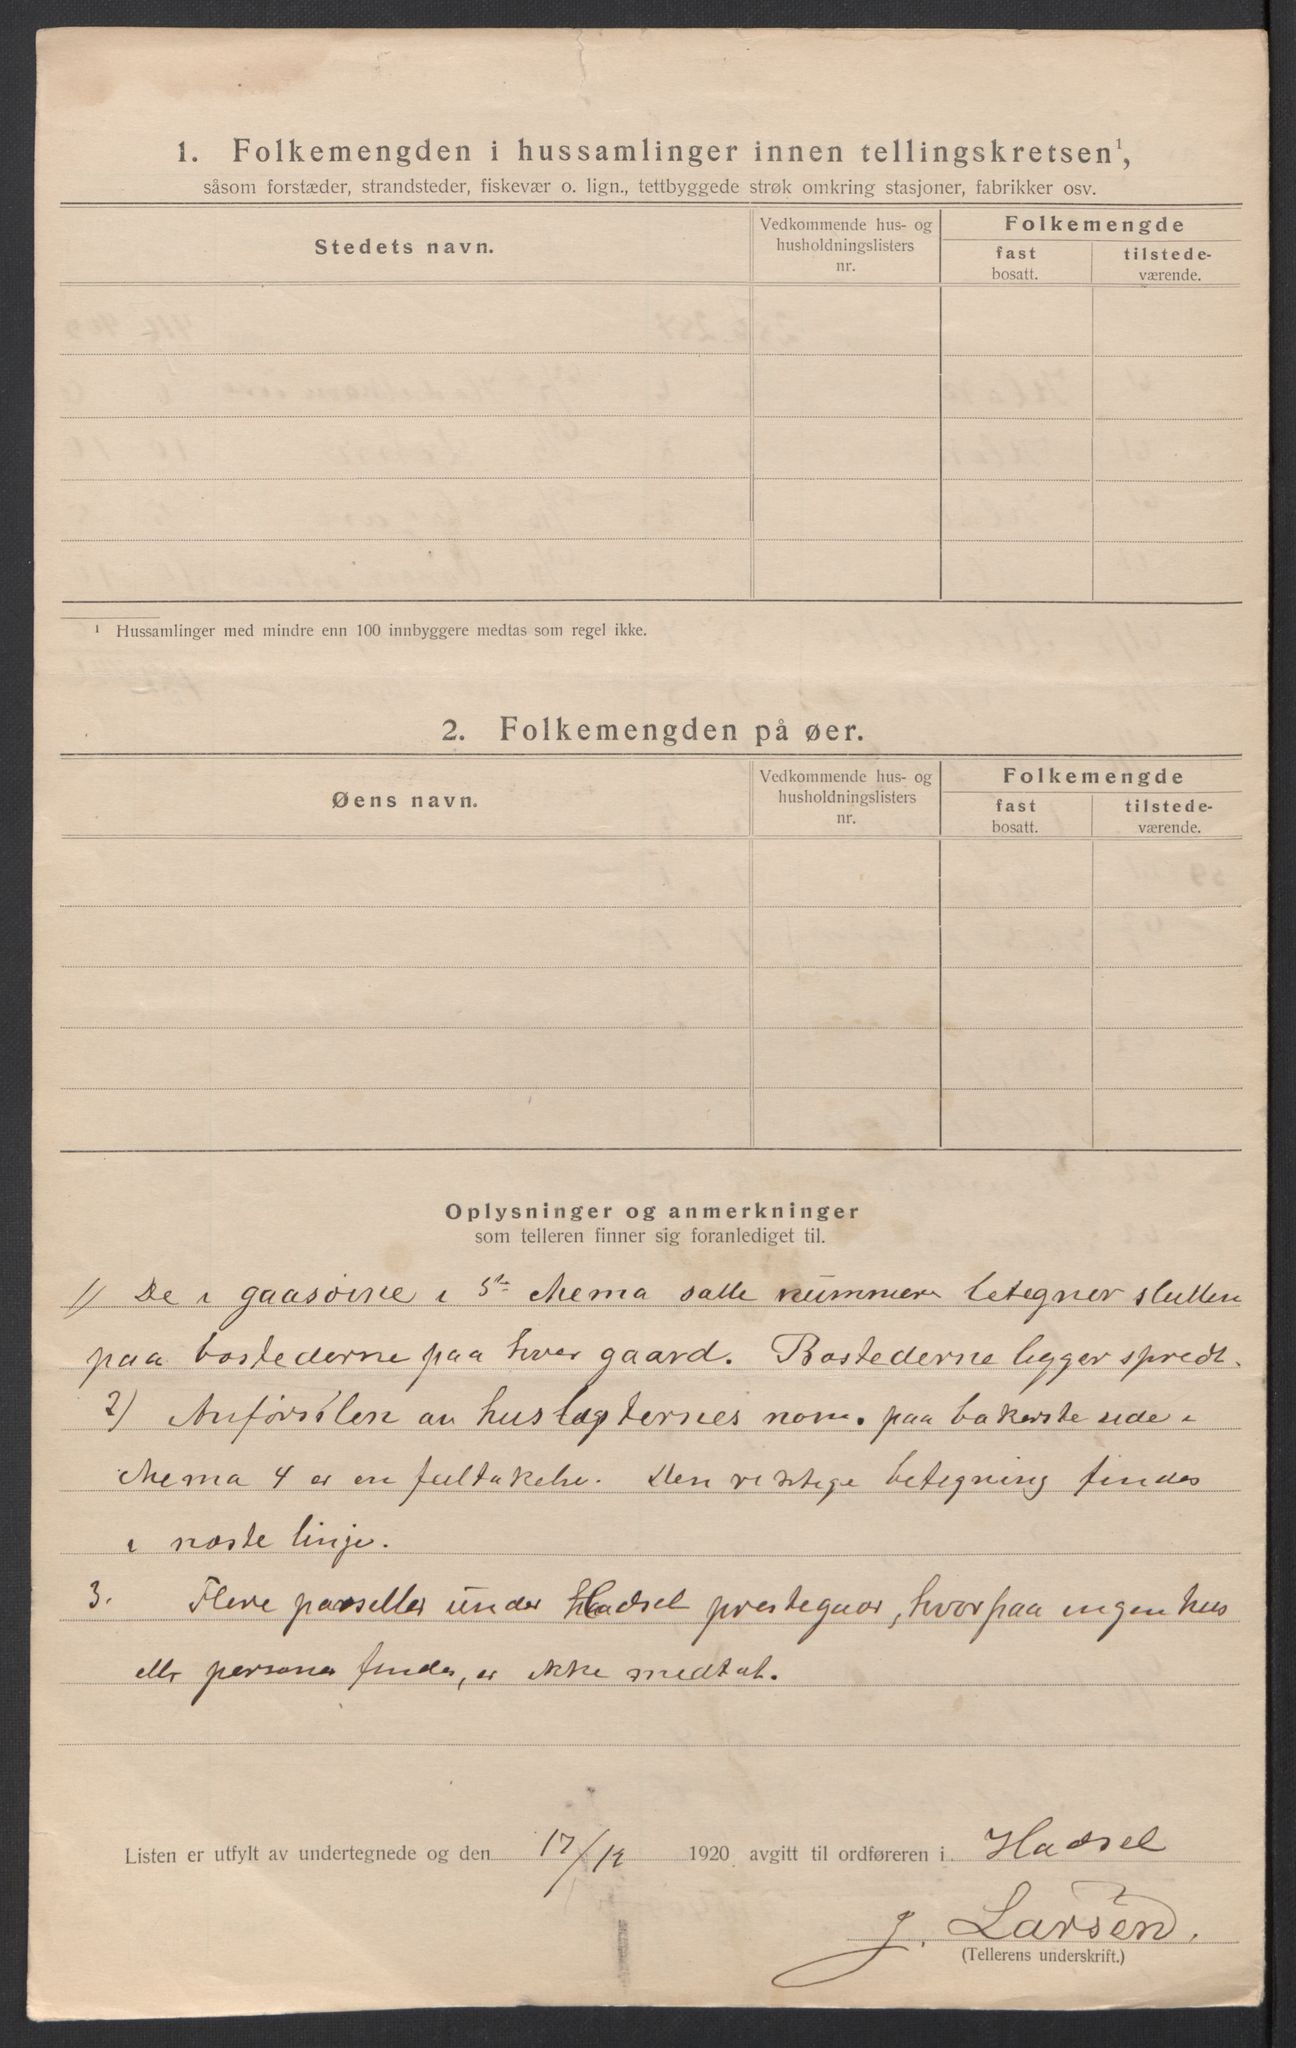 1. Folkemengden i hussamlinger innen tellingskretsen¹,
såsom forstæder, strandsteder, fiskevær o. lign., tettbyggede strøk omkring stasjoner, fabrikker osv.
Stedets navn.
Vedkommende hus- og
husholdningslisters
nr.
Folkemengde
fast
bosatt.
tilstede-
værende.
¹ Hussamlinger med mindre enn 100 innbyggere medtas som regel ikke.
2. Folkemengden på øer.
Øens navn.
Vedkommende hus- og
husholdningslisters
nr.
Folkemengde
fast
bosatt.
tilstede-
værende.
Oplysninger og anmerkninger
som telleren finner sig foranlediget til.
1) De i i skema satte nummere betegner slutten
paa bostederne paa hver gaard. Bostederne ligger spredt.
2) Anførslen av huslegternes nom. paa bakerste side i
skema 4 er en feiltakelse. Den riktige betegning findes
i næste linje.
3. Flere parseller under Hadsel prestegaar, hvorpaa ingen hus
ell. personer findes, er ikke medtat.
Listen er utfylt av undertegnede og den 17/12 1920 avgitt til ordføreren i Hadsel
J. Larsen.
(Tellerens underskrift.)